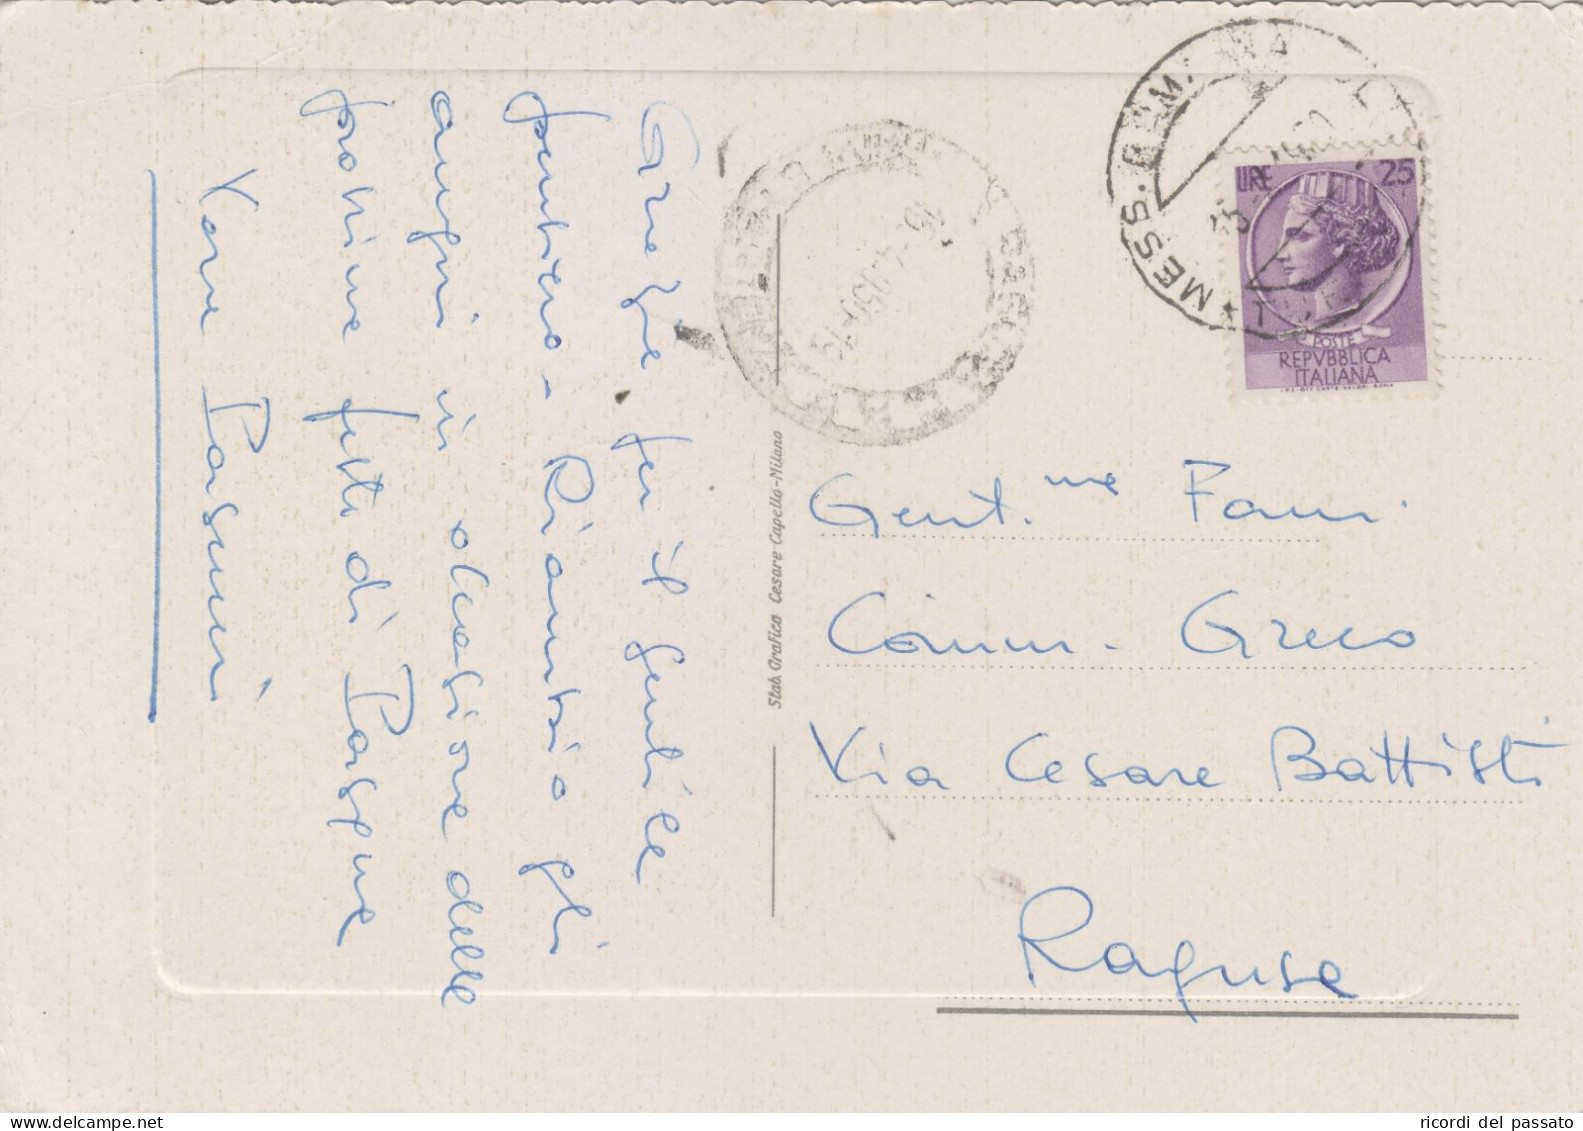 Grazie per il gentile
pensiero - Ricambio gli
auguri in occasione delle
prossime feste di Pasqua
Stab. Grafico Cesare Capello-Milano
MESS.
LIRE 25
POSTE
REPVBBLICA
ITALIANA
Gent.me Fam.
Comm. Greco
Via Cesare Battisti
Ragusa
delcampe.net
ricordi del passato